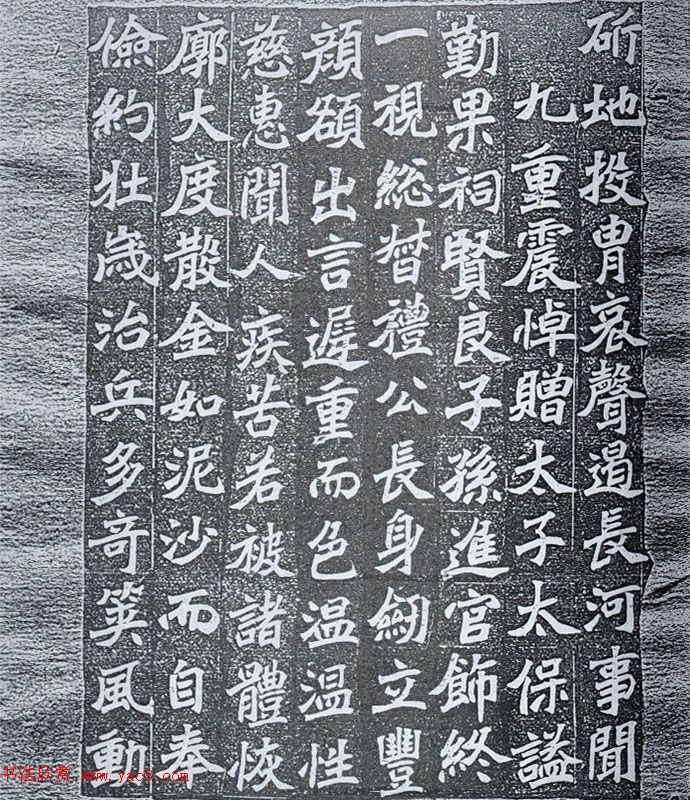 斫地投胄哀聲過長河事聞
九重震悼贈太子太保謚
勤果祠賢良子孫進官飾終
一視總督禮公長身劒立豐
顏頟出言遲重而色温温性
慈惠聞人疾苦若被諸體恢
廓大度散金如泥沙而自奉
儉約壯歲治兵多奇筴風動
书法欣赏 www.yac8.com